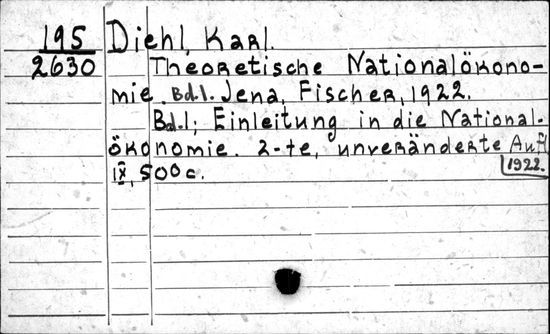 195 Diehl, Karl.
2630 Theoretische Nationalökono-
mie. Bd.1. Jena, Fischer, 1922.
Bd.1; Einleitung in die National-
ökonomie. 2-te, unveränderte Aufl
IX, 500 c. 1922.